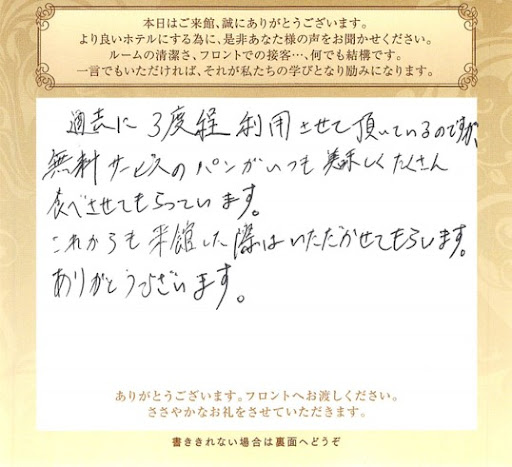 本日はご来館、誠にありがとうございます。
より良いホテルにする為に、是非あなた様の声をお聞かせください。
ルームの清潔さ、フロントでの接客…、何でも結構です。
一言でもいただければ、それが私たちの学びとなり励みになります。
過去に3度経利用させて頂いているのですが、
無料サービスのパンがいつも美味しくたくさん
食べさせてもらっています。
これからも来館した際はいただかせてもらいます。
ありがとうございます。
ありがとうございます。フロントへお渡しください。
ささやかなお礼をさせていただきます。
書ききれない場合は裏面へどうぞ